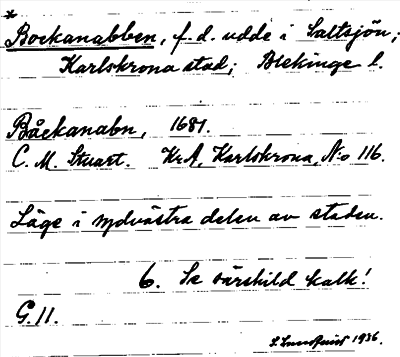 *
Bockanabben, f.d. udde i Saltsjön,
Karlskrona stad; Blekinge l.
Båckanabn, 1681.
C. M. Stuart. KrA, Karlskrona, N:o 116.
Läge i sydvästra delen av staden.
6. Se särskild kalk!
G. 11.
S. Lundquist 1936.